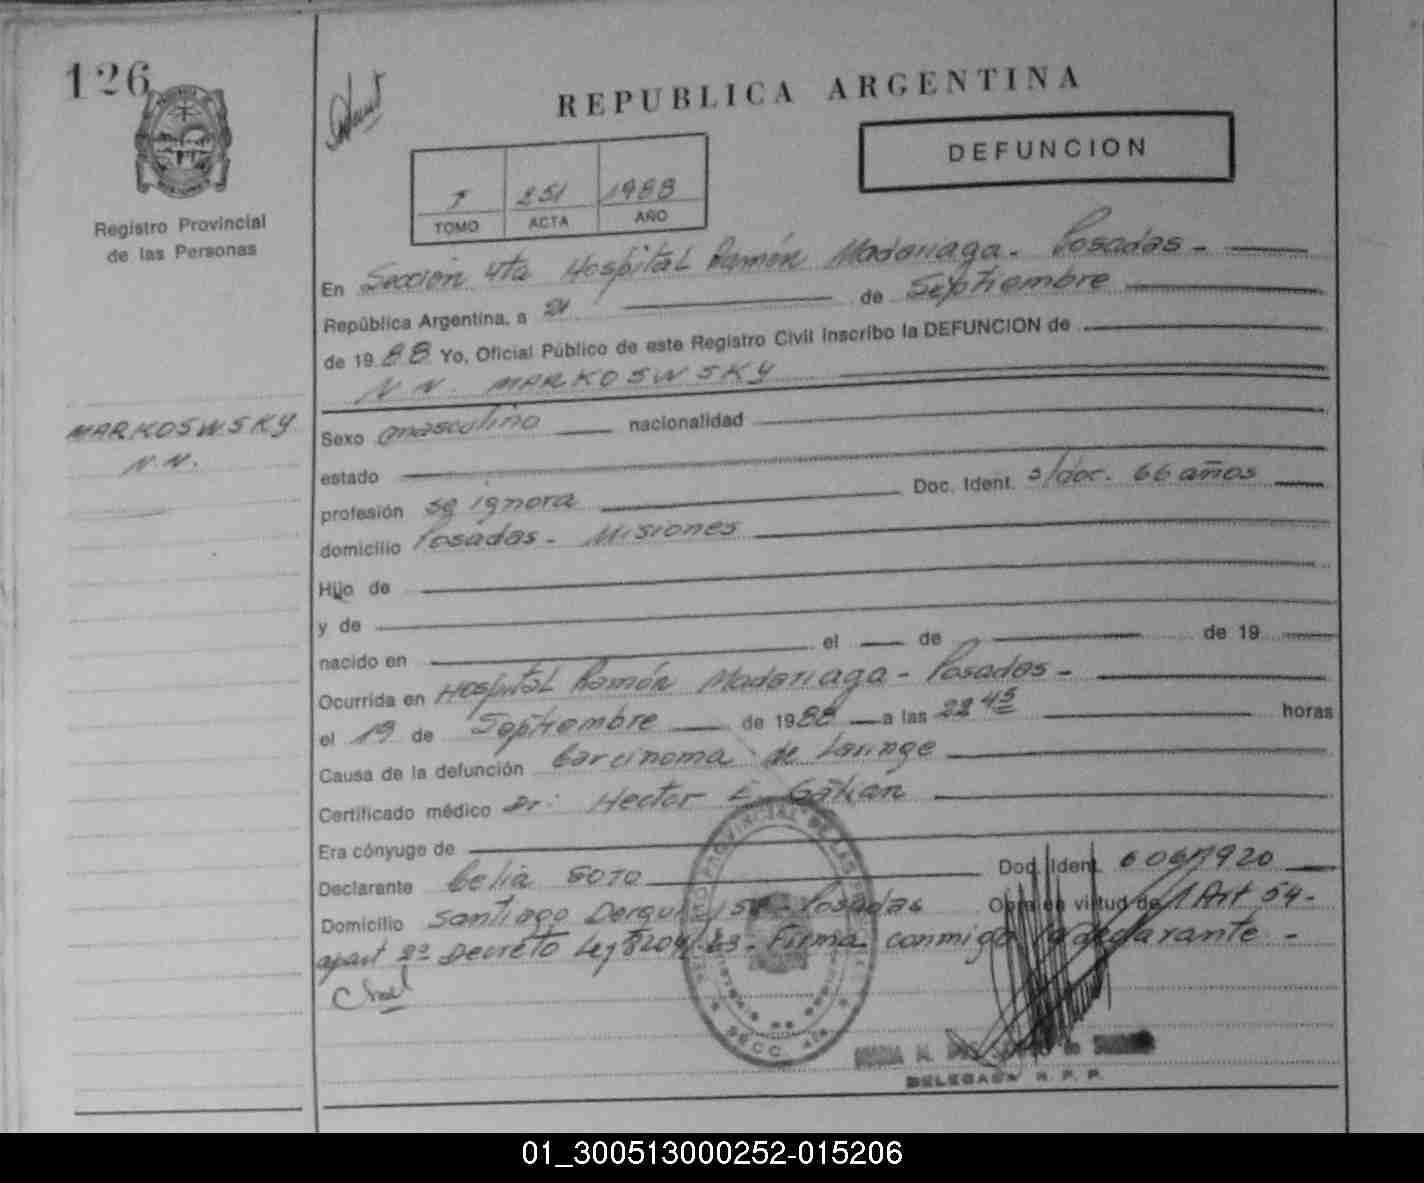 126
Registro Provincial
de las Personas
MARKOSWSKY
N.N.
REPUBLICA ARGENTINA
DEFUNCION
251 1988
TOMO ACTA AÑO
En Sección 4ta Hospital Ramón Madariaga - Posadas -
República Argentina, a 21 de Septiembre
de 1988 Yo, Oficial Público de este Registro Civil inscribo la DEFUNCION de
N.N. MARKOSWSKY
Sexo masculino nacionalidad
estado
profesión se ignora Doc. Ident. s/doc. 66 años
domicilio Posadas - Misiones
Hijo de
y de
nacido en el de de 19
Ocurrida en Hospital Ramón Madariaga - Posadas -
el 19 de Septiembre de 1988 a las 22 45 horas
Causa de la defunción Carcinoma de Laringe
Certificado médico Dr: Hector E. Galián
Era cónyuge de
Declarante Celia Soto Doc. Ident.
Domicilio Santiago Derqui Posadas Obra en virtud de Art 54-
apart 2º Decreto Ley 8204/63 - Firma conmigo la declarante -
SECC. 4ta.
DELEGADA R. P. P.
01_300513000252-015206